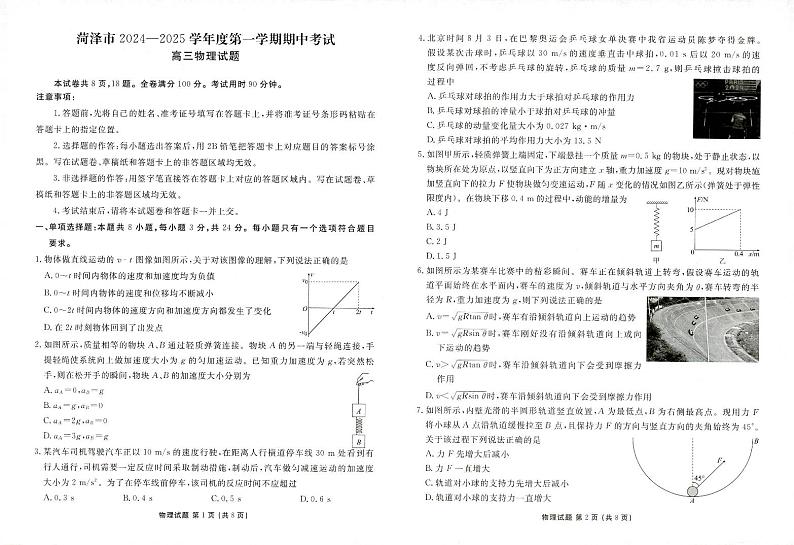 菏泽市2024—2025学年度第一学期期中考试
高三物理试题
本试卷共8页,18题。全卷满分100分。考试用时90分钟。
注意事项:
1.答题前,先将自己的姓名、准考证号填写在答题卡上,并将准考证号条形码粘贴在
答题卡上的指定位置。
2.选择题的作答:每小题选出答案后,用2B铅笔把答题卡上对应题目的答案标号涂
黑。写在试题卷、草稿纸和答题卡上的非答题区域均无效。
3.非选择题的作答:用签字笔直接答在答题卡上对应的答题区域内。写在试题卷、草
稿纸和答题卡上的非答题区域均无效。
4.考试结束后,请将本试题卷和答题卡一并上交。
一、单项选择题:本题共8小题,每小题3分,共24分。每小题只有一个选项符合题目
要求。
1.物体做直线运动的v-t图像如图所示,关于对该图像的理解,下列说法正确的是
A.0~t时间内物体的速度和加速度均为负值
B.0~t时间内物体的速度和位移均不断减小
C.0~2t时间内物体的速度方向和加速度方向都发生了变化
D.在2t时刻物体回到了出发点
v
v₀
0
t
2t
t
-v₀
2.如图所示,质量相等的物块A、B通过轻质弹簧连接。物块A的另一端与轻绳连接,手
提轻绳使系统向上做加速度大小为g的匀加速运动。已知重力加速度为g,若突然松
手,则在松开手的瞬间,物块A、B的加速度大小分别为
A.aA=0,aB=g
B.aA=g,aB=0
C.aA=2g,aB=0
D.aA=3g,aB=g
A
B
3.某汽车司机驾驶汽车正以10 m/s的速度行驶,在距离人行横道停车线30 m处看到有
行人通行,司机需要一定反应时间采取制动措施,制动后,汽车做匀减速运动的加速度
大小为2 m/s²。为了在停车线前停车,该司机的反应时间不应超过
A.0.3 s B.0.4 s C.0.5 s D.0.6 s
物理试题 第1页(共8页)
4.北京时间8月3日,在巴黎奥运会乒乓球女单决赛中我省运动员陈梦夺得金牌。
假设某次击球时,乒乓球以30 m/s的速度垂直击中球拍,0.01 s后以20 m/s的速
度反向弹回,不考虑乒乓球的旋转,乒乓球的质量m=2.7 g,则乒乓球撞击球拍的
过程中
A.乒乓球对球拍的作用力大于球拍对乒乓球的作用力
B.乒乓球对球拍的冲量小于球拍对乒乓球的冲量
C.乒乓球的动量变化量大小为0.027 kg·m/s
D.乒乓球对球拍的平均作用力大小为13.5 N
5.如图甲所示,轻质弹簧上端固定,下端悬挂一个质量m=0.5 kg的物块,处于静止状态,以
物块所在处为原点,以竖直向下为正方向建立x轴,重力加速度g=10 m/s²。现对物块施
加竖直向下的拉力F使物块做匀变速运动,F随x变化的情况如图乙所示(弹簧处于弹性
限度内)。在物块下移0.4 m的过程中,动能的增量为
A.4 J
B.3.5 J
C.2 J
D.1.5 J
m
甲
F/N
10
5
0
0.4 x/m
乙
6.如图所示为某赛车比赛中的精彩瞬间。赛车正在倾斜轨道上转弯,假设赛车运动的轨
道平面始终在水平面内,赛车的速度为v,倾斜轨道与水平方向夹角为θ,赛车转弯的半
径为R,重力加速度为g,则下列说法正确的是
A.v=√gRtan θ时,赛车有沿倾斜轨道向上运动的趋势
B.v=√gRsin θ时,赛车刚好没有沿倾斜轨道向上或向
下运动的趋势
C.v>√gRtan θ时,赛车沿倾斜轨道向下会受到摩擦力
作用
D.v<√gRsin θ时,赛车沿倾斜轨道向下会受到摩擦力作用
7.如图所示,内壁光滑的半圆形轨道竖直放置,A为最低点,B为右侧最高点。现用力F
将小球从A点沿轨道缓慢拉至B点,且保持力F的方向与竖直方向的夹角始终为45°。
关于该过程下列说法正确的是
A.力F先增大后减小
B.力F一直增大
C.轨道对小球的支持力先增大后减小
D.轨道对小球的支持力一直增大
B
F
45°
A
物理试题 第2页(共8页)